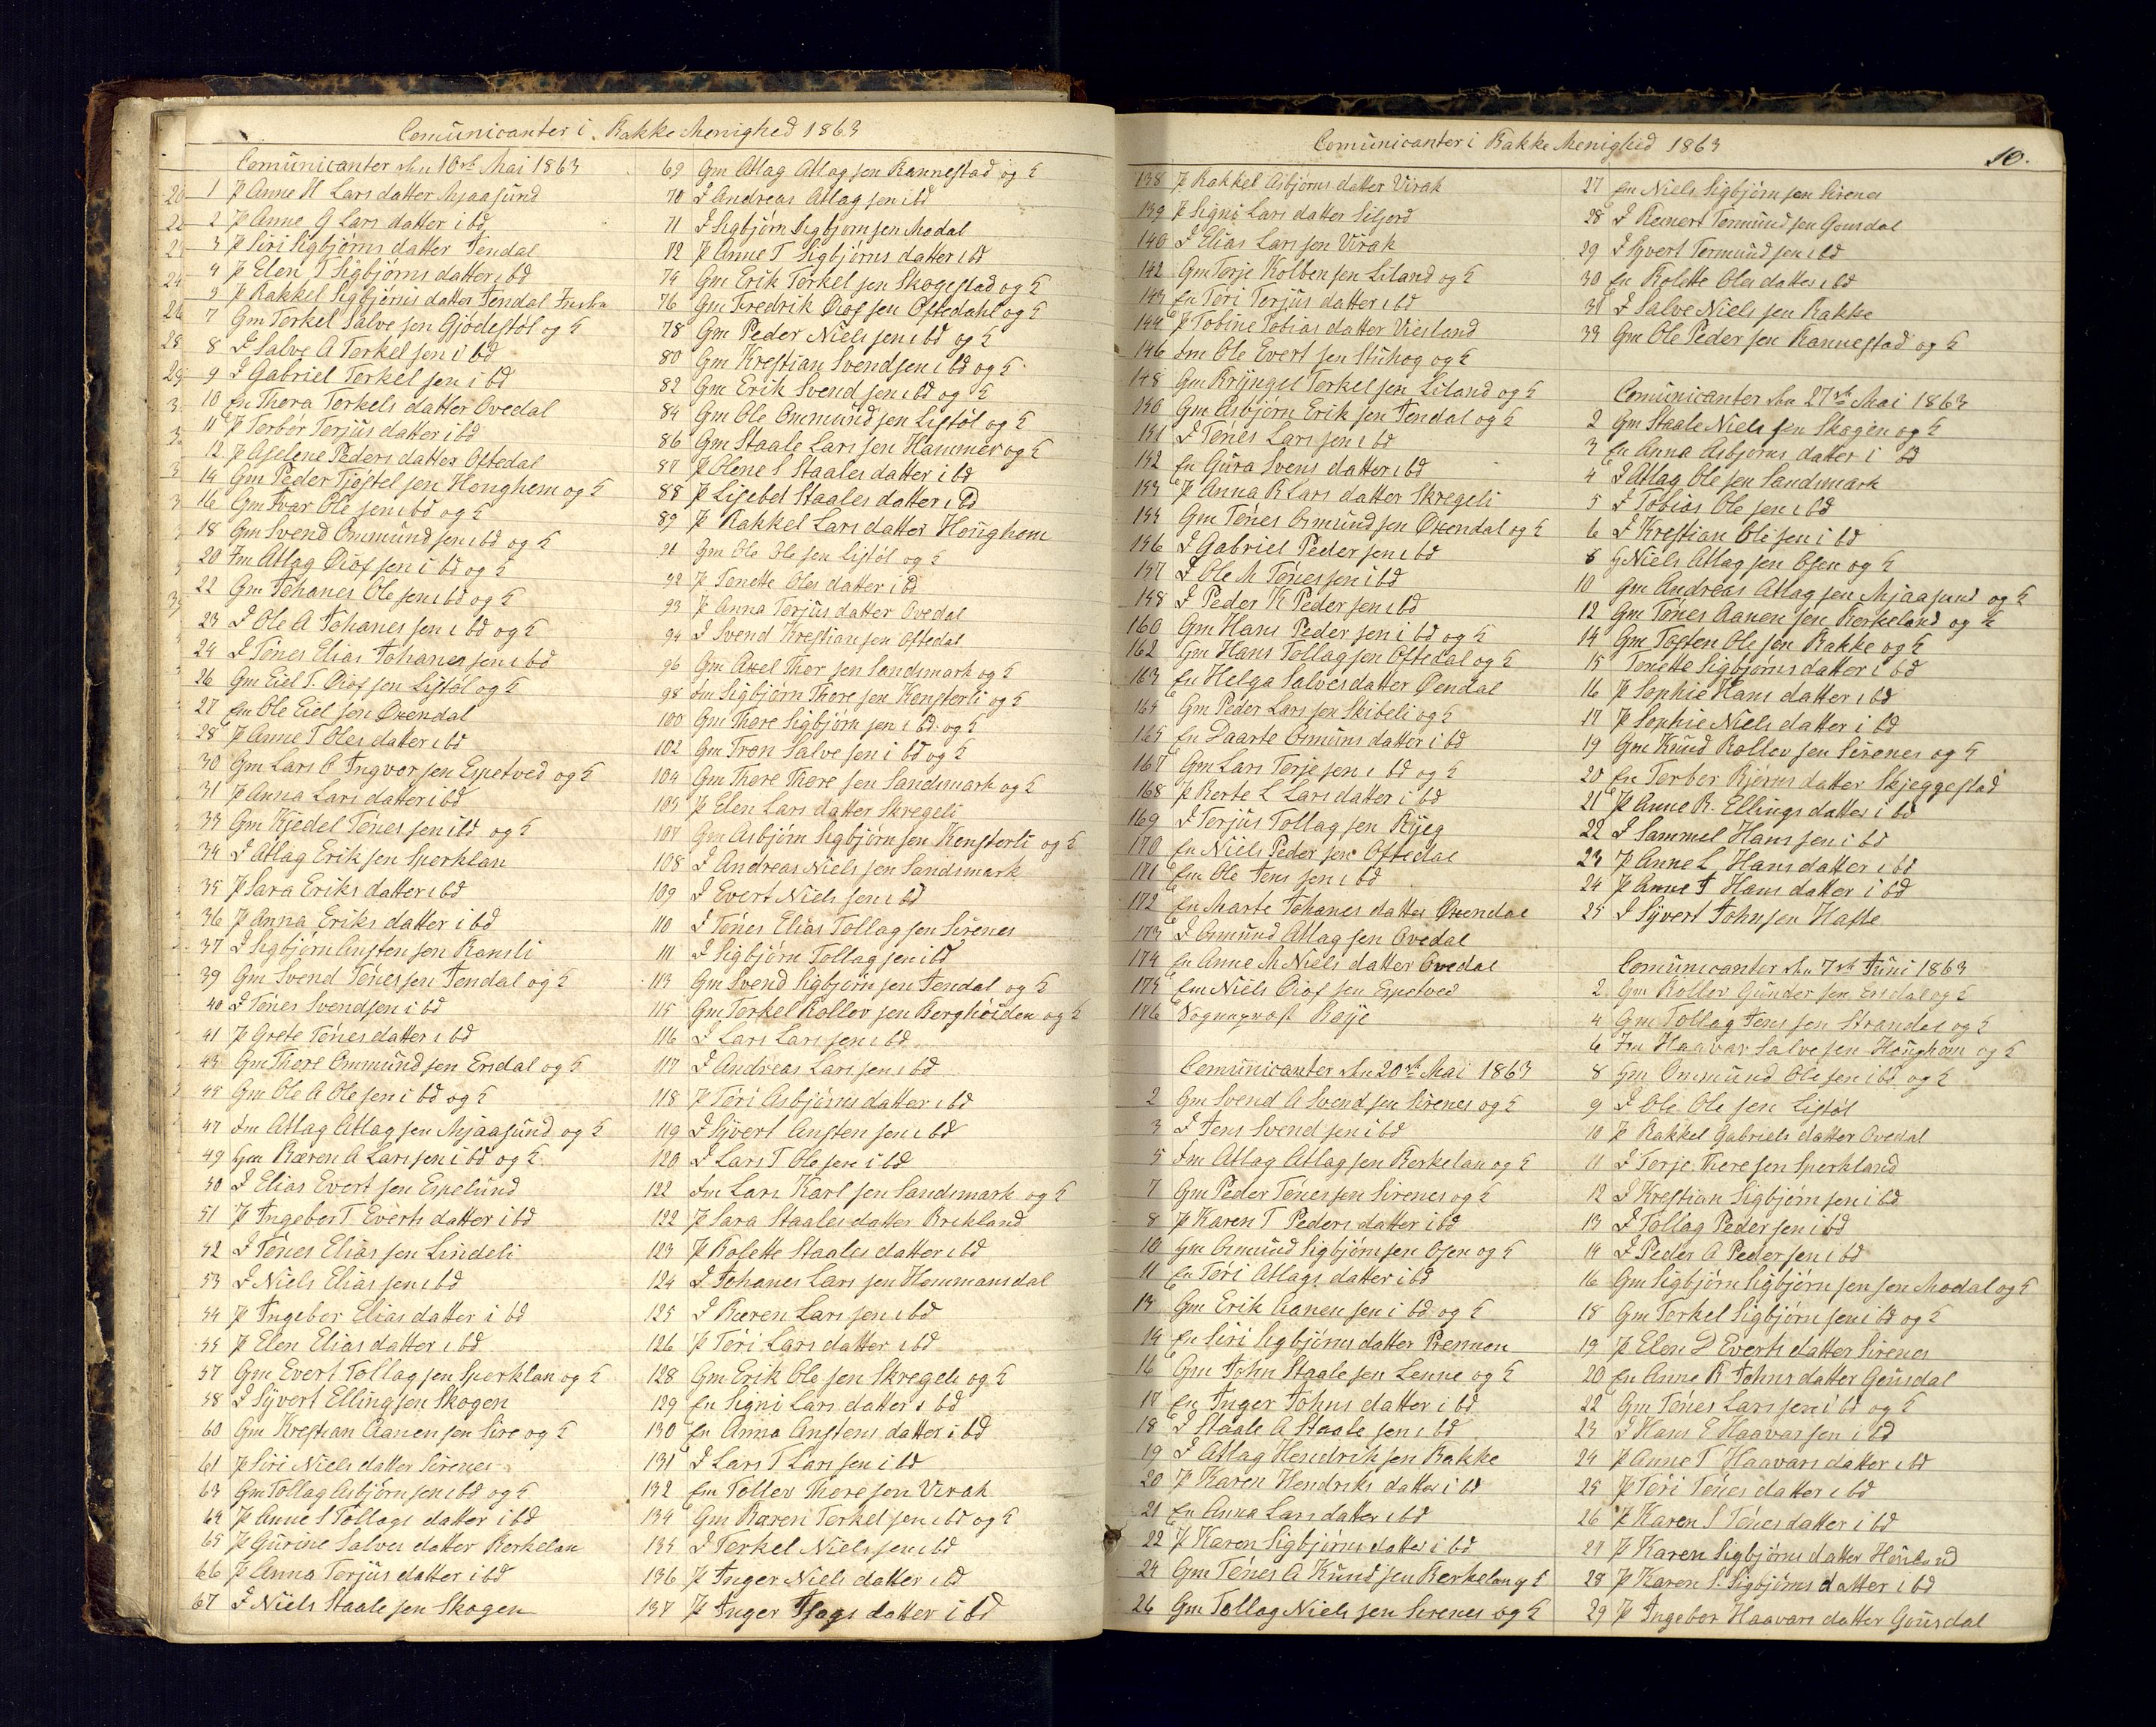 Comunicanter i Bakke Menighed 1863
Comunicanter den 10de Mai 1863
1 P Anne H Lars datter Mjaasund
2 P Anne G Lars datter ibd
3 P Siri Sigbjørns datter Jendal
4 P Elen T Sigbjørns datter ibd
5 P Rakkel Sigbjørns datter Jendal
7 Gm Terkel Salve sen Gjødestøl og H
8 J Salve A Terkel sen i bd
9 J Gabriel Terkel sen i bd
10 En Thora Terkels datter Ovedal
11 P Torbør Terjus datter i bd
12 P Aselene Peders datter Oftedal
14 Gm Peder Tjøstel sen Honghem og H
16 Gm Ivar Ole sen ibd og H
18 Gm Svend Ommund sen ibd og H
20 Fm Atlag Oiof sen i bd og H
22 Gm Johanes Ole sen ibd og H
23 J Ole A Johanes sen ibd og H
24 J Tønes Elias Johanes sen ibd
26 Gm Eiel T. Oiof sen Listøl og H
27 Em Ole Eiel sen Oxendal
28 P Anne T Oles datter ibd
30 Gm Lars O Ingvor sen Espetved og H
31 P Anna Lars datter ibd
33 Gm Kjedel Tønes sen ibd og H
34 J Atlag Erik sen Sperklan
35 P Sara Eriks datter ibd
36 P Anna Eriks datter i bd
37 J Sigbjørn Ansten sen Ramsli
39 Gm Svend Tønes sen Jendal og H
40 J Tønes Svendsen i bd
41 P Grete Tønes datter ibd
43 Gm Thore Ommund sen Ersdal og H
45 Gm Ole A Ole sen i bd og H
47 Fm Atlag Atlag sen Mjaasund og H
49 Gm Bæren A Lars sen i bd og H
50 J Elias Evert sen Espelund
51 P Ingebor T. Everts datter i bd
52 J Tønes Elias sen Lindeli
53 J Niels Elias sen ibd
54 P Ingebor Elias datter i bd
55 P Elen Elias datter ibd
57 Gm Evert Tollag sen Sperklan og H
58 J Syvert Elling sen Skogen
60 Gm Krestian Aanen sen Sire og H
61 P Siri Niels datter Sirenes
63 Gm Tollag Asbjørn sen ibd og H
64 P Anne S Tollags datter i bd
65 P Gurine Salves datter Berkelan
66 P Anna Terjus datter i bd
67 J Niels Staale sen Skogen
69 Gm Atlag Atlag sen Rannestad og H
70 J Andreas Atlag sen ibd
71 J Sigbjørn Sigbjørn sen Modal
72 P Anne T Sigbjørns datter ibd
74 Gm Erik Terkel sen Skogestad og H
76 Gm Fredrik Oiof sen Oftedahl og H
78 Gm Peder Niels sen ibd og H
80 Gm Krestian Svendsen ibd og H
82 Gm Erik Svend sen ibd og H
84 Gm Ole Ommund sen Listøl og H
86 Gm Staale Lars sen Hammer og H
87 P Olene S Staales datter i bd
88 P Lisebet Staales datter ibd
89 P Rakkel Lars datter Honghom
91 Gm Ole Ole sen Listøl og H
92 P Tonette Oles datter i bd
93 P Anna Terjus datter Ovedal
94 J Svend Krestian sen Oftedal
96 Gm Axel Thor sen Sandsmark og H
98 Fm Sigbjørn Thore sen Kensterli og H
100 Gm Thore Sigbjørn sen i bd og H
102 Gm Tron Salve sen i bd og H
104 Gm Thore Thore sen Sandsmark og H
105 P Elen Lars datter Skregeli
107 Gm Asbjørn Sigbjørn sen Kensterli og H
108 J Andreas Niels sen Sandsmark
109 J Evert Niels sen ibd
110 J Tønes Elias Tollag sen Sirenes
111 J Sigbjørn Tollag sen ibd
113 Gm Svend Sigbjørn sen Jendal og H
115 Gm Terkel Rollov sen Berghøiden og H
116 J Lars Lars sen ibd
117 J Andreas Lars sen ibd
118 P Tøri Asbjørns datter ibd
119 J Syvert Ansten sen ibd
120 J Lars T Ole sen i bd
122 Fm Lars Karl sen Sandsmark og H
122 P Sara Staales datter Birkland
123 P Rolette Staales datter ibd
124 J Johanes Lars sen Hommansdal
125 J Bæren Lars sen ibd
126 P Tøri Lars datter ibd
128 Gm Erik Ole sen Skregeli og H
129 En Signi Lars datter i bd
130 En Anna Anstens datter i bd
131 J Lars T Lars sen i bd
132 Em Tollev Thore sen Virak
134 Gm Bæren Terkel sen ibd og H
135 J Terkel Niels sen ibd
136 P Inger Niels datter ibd
137 P Inger Isags datter i bd
Comunicanter i Bakke Menighed 1863
10.
138 P Rakkel Asbjørns datter Virak
139 P Signi Lars datter Siljord
140 J Elias Lars sen Virak
142 Gm Terje Kolben sen Liland og H
143 En Tøri Terjus datter ibd
144 P Tobine Tobias datter Viesland
146 Fm Ole Evert sen Stuhog og H
148 Gm Bryngel Terkel sen Liland og H
150 Gm Asbjørn Erik sen Jendal og H
151 J Tønes Lars sen ibd
152 En Gura Svens datter ibd
153 P Anna B Lars datter Skregeli
155 Gm Tønes Osmund sen Oxendal og H
156 J Gabriel Peder sen ibd
157 J Ole M Tønes sen i bd
158 J Peder K Peder sen ibd
160 Gm Hans Peder sen i bd og H
162 Gm Hans Tollag sen Oftedal og H
163 En Helga Salves datter Øendal
164 Gm Peder Lars sen Skibeli og H
165 En Daarte Osmuns datter i bd
167 Gm Lars Terje sen i bd og H
168 P Berte L Lars datter i bd
169 J Terjus Tollag sen Ryeg
170 En Niels Peder sen Oftedal
171 Em Ole Jens sen ibd
172 En Marte Johanes datter Oxendal
173 J Osmund Atlag sen Ovedal
174 En Anne M Niels datter Ovedal
175 Em Niels Oiof sen Espetved
176 Sogneprost Boije
Comunicanter den 20de Mai 1863
2 Gm Svend A Svend sen Sirenes og H
3 J Jens Svend sen i bd
5 Fm Atlag Atlag sen Berkelan og H
7 Gm Peder Tønes sen Sirenes og H
8 P Karen T Peders datter i bd
10 Gm Osmund Sigbjørn sen Osen og H
11 En Tøri Atlags datter i bd
13 Gm Erik Aanen sen i bd og H
14 En Siri Sigbjørns datter Prennen
16 Gm John Staale sen Lenne og H
17 En Inger Johns datter i bd
18 J Staale A Staale sen ibd
19 J Atlag Hendrik sen Bakke
20 P Karen Hendriks datter i bd
21 En Anna Lars datter ibd
22 P Karen Sigbjørns datter i bd
24 Gm Tønes A Knud sen Berkelan og H
26 Gm Tollag Niels sen Sirenes og H
27 Em Niels Sigbjørn sen Sirenes
28 J Reinert Tormund sen Gousdal
29 J Syvert Tormund sen ibd
30 En Rolette Oles datter ibd
31 J Salve Niels sen Bakke
33 Gm Ole Peder sen Rannestad og H
Comunicanter den 27de Mai 1863
2 Gm Staale Niels sen Skogen og H
3 En Anna Asbjørns datter i bd
4 J Atlag Ole sen Sandsmark
5 J Tobias Ole sen ibd
6 J Krestian Ole sen i bd
8 G Niels Atlag sen Osen og H
10 Gm Andreas Atlag sen Mjaasund og H
12 Gm Tønes Aanen sen Berkeland og H
14 Gm Tosten Ole sen Bakke og H
15 Tonette Sigbjørns datter i bd
16 P Sophie Hans datter ibd
17 P Sophie Niels datter i bd
19 Gm Knud Rollov sen Sirenes og H
20 En Torber Bjerns datter Skjeggestad
21 P Anne B. Ellings datter i bd
22 J Sammel Hans sen i bd
23 P Anne L Hans datter ibd
24 P Anne J Hans datter i bd
25 J Syvert John sen Hafte
Comunicanter den 7de Juni 1863
2 Gm Rollov Gunder sen Ersdal og H
4 Gm Tollag Jens sen Strandes og H
6 Fm Haavar Salve sen Honghom og H
8 Gm Ommund Ole sen ibd og H
9 J Ole Ole sen Listøl
10 P Rakkel Gabriels datter Ovedal
11 J Terje Thore sen Sperkland
12 J Krestian Sigbjørn sen i bd
13 J Tollag Peder sen i bd
14 J Peder A Peder sen ibd
16 Gm Sigbjørn Sigbjørn sen sen Modal og H
18 Gm Terkel Sigbjørn sen ibd og H
19 P Elen D Everts datter Sirenes
20 En Anne B Johns datter Gousdal
22 Gm Tønes Lars sen i bd og H
23 J Hans E Haavar sen ibd
24 P Anne T Haavars datter ibd
25 P Tøri Tønes datter ibd
26 P Karen S Tønes datter i bd
27 P Karen Sigbjørns datter Houland
28 P Karen S. Sigbjørns datter i bd
29 P Ingebor Haavars datter Gousdal